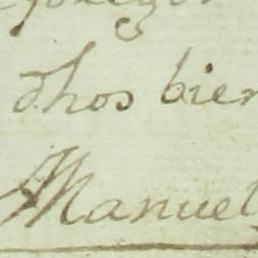 dhos bien
Manuel